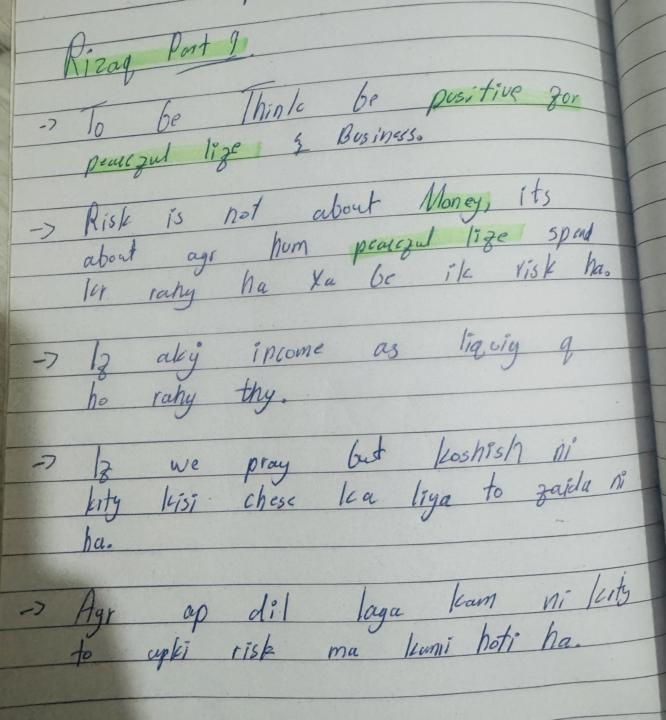 Rizaq Part 9
-> To be Think be positive for
peaceful life & Business.
-> Risk is not about Money, its
about agr hum peaceful life spend
kr rahy ha ya be ik risk ha.
-> If aky income as q
ho rahy thy.
-> If we pray but koshish ni
kity kisi chese ka liya to faida ni
ha.
-> Agr ap dil laga kam ni kity
to apki risk ma kami hoti ha.